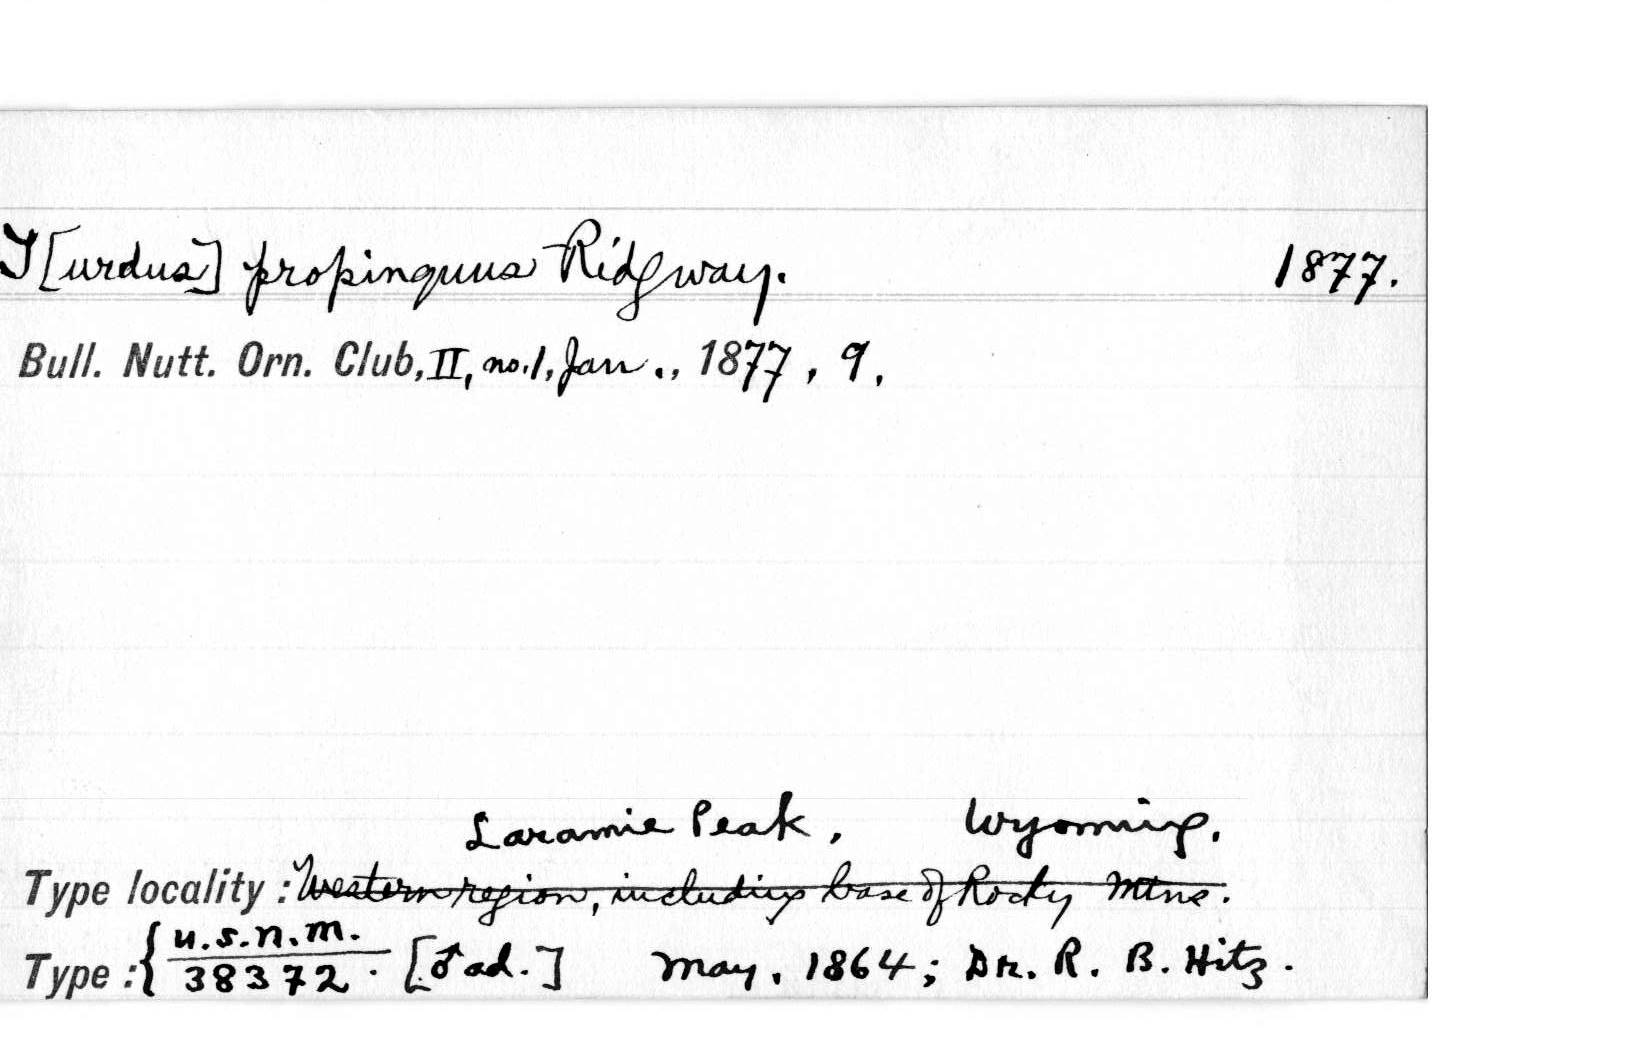 T[urdus] propinquus Ridgway. 1877.
Bull. Nutt. Orn. Club, II, no. 1, Jan., 1877, 9.
Laramie Peak, Wyoming.
Type locality: Western region, including base of Rocky Mtns.
Type: { U.S.N.M.
38372. [♂ ad.] May, 1864; Dr. R. B. Hitz.